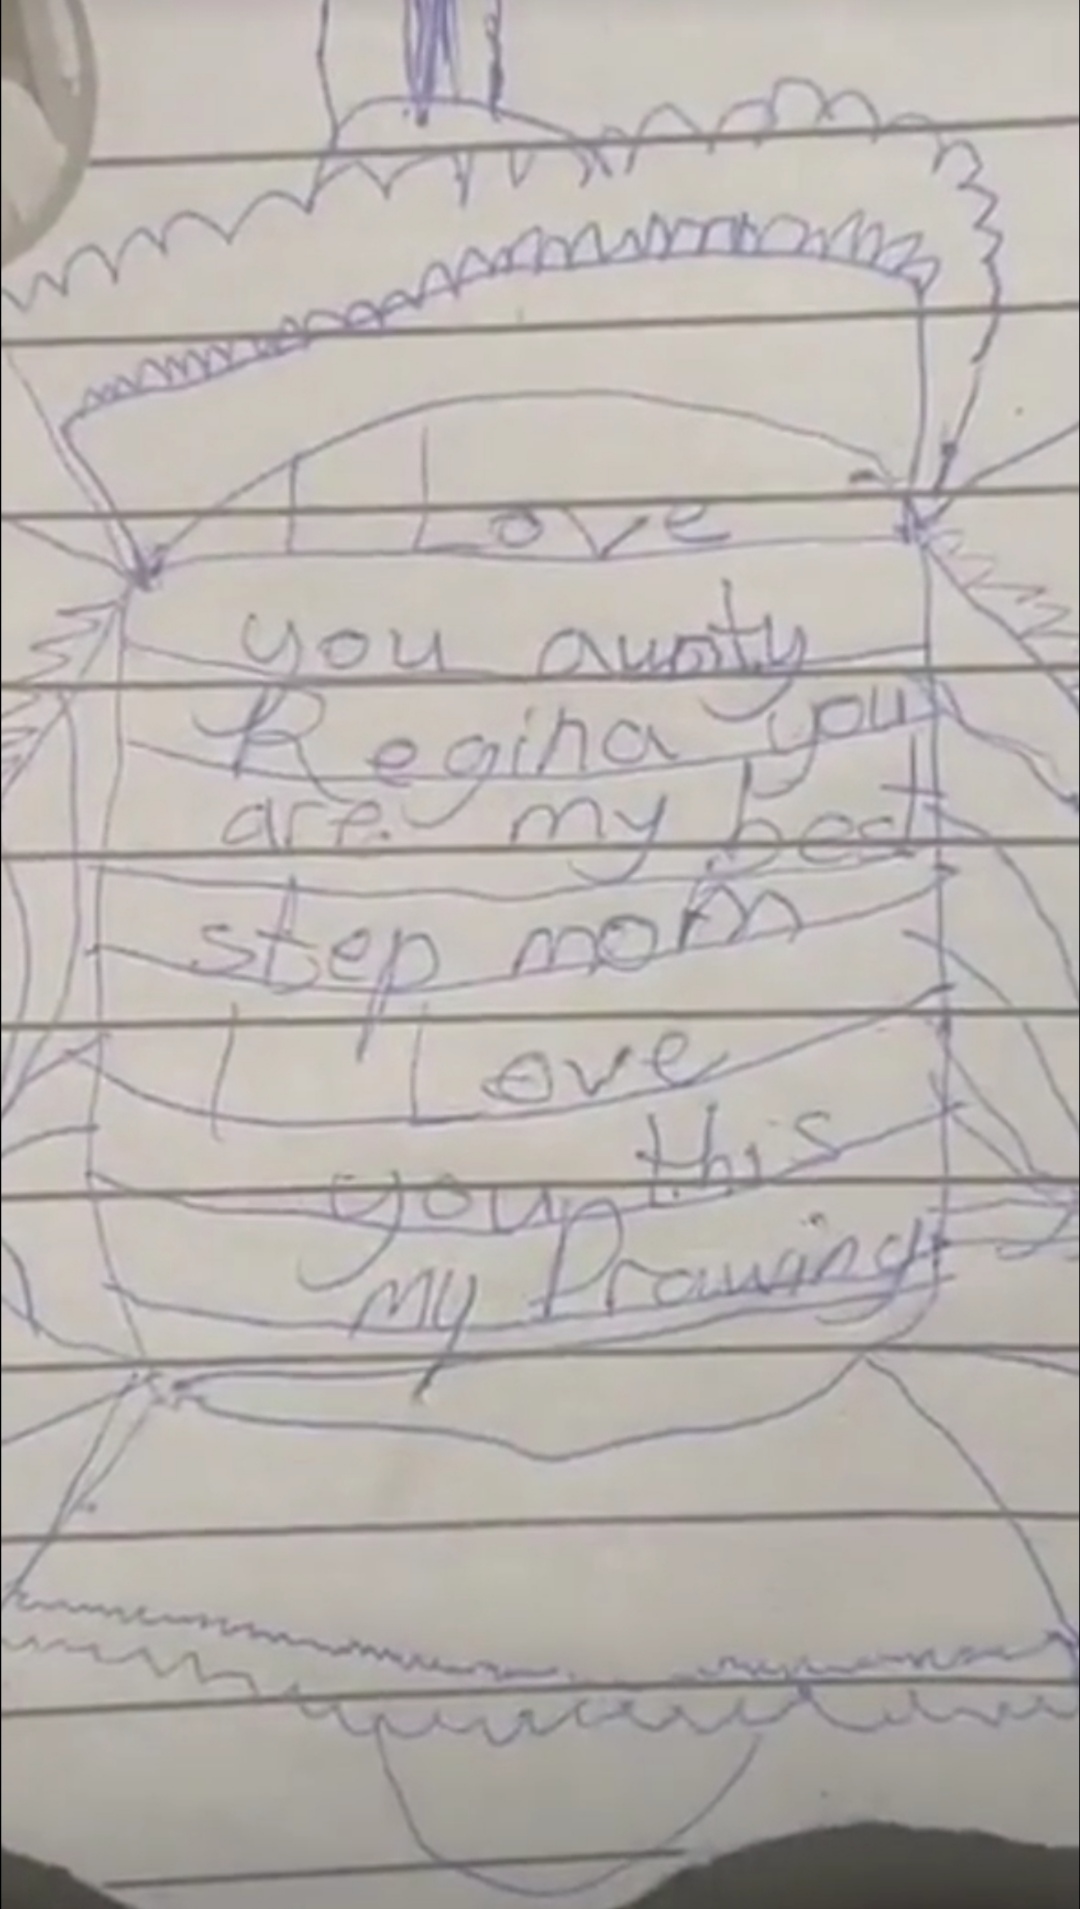 I Love
you aunty
Regina you
are my best
step mom
I Love
you this
my Drawing